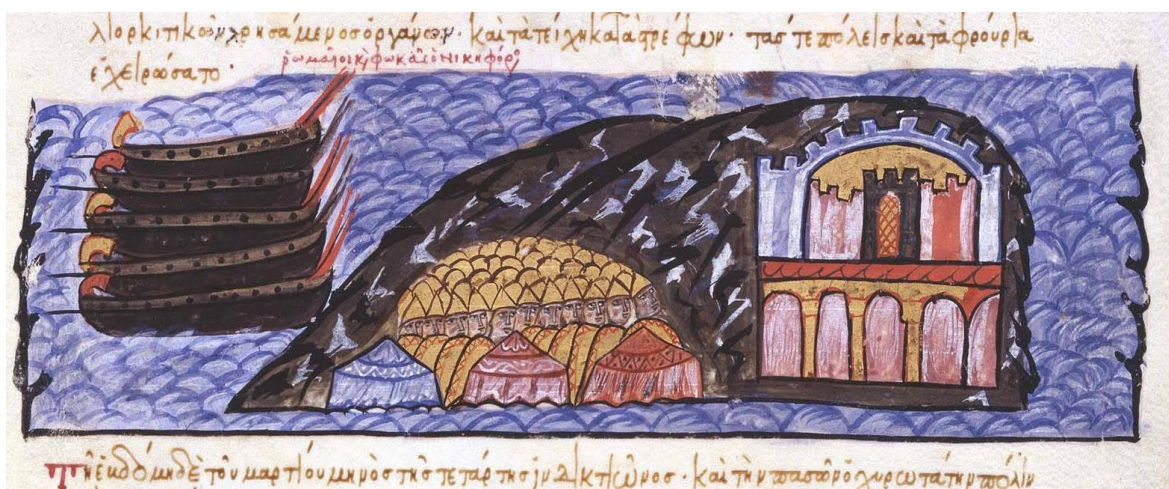 λιορκιτικοῖς χρησάμενος ὀργάνοις· καὶ τὰ τείχη καταστρέφων· τάς τε πόλεις καὶ τὰ φρούρια
ἐχειρώσατο·
ῥωμαῖοι κ φωκᾶς ὁ νικηφόρος
τῇ ἑβδόμη δὲ τοῦ μαρτίου μηνὸς τῆς τετάρτης ἰνδικτιῶνος· καὶ τὴν πασῶν ὀχυρωτάτην πόλιν